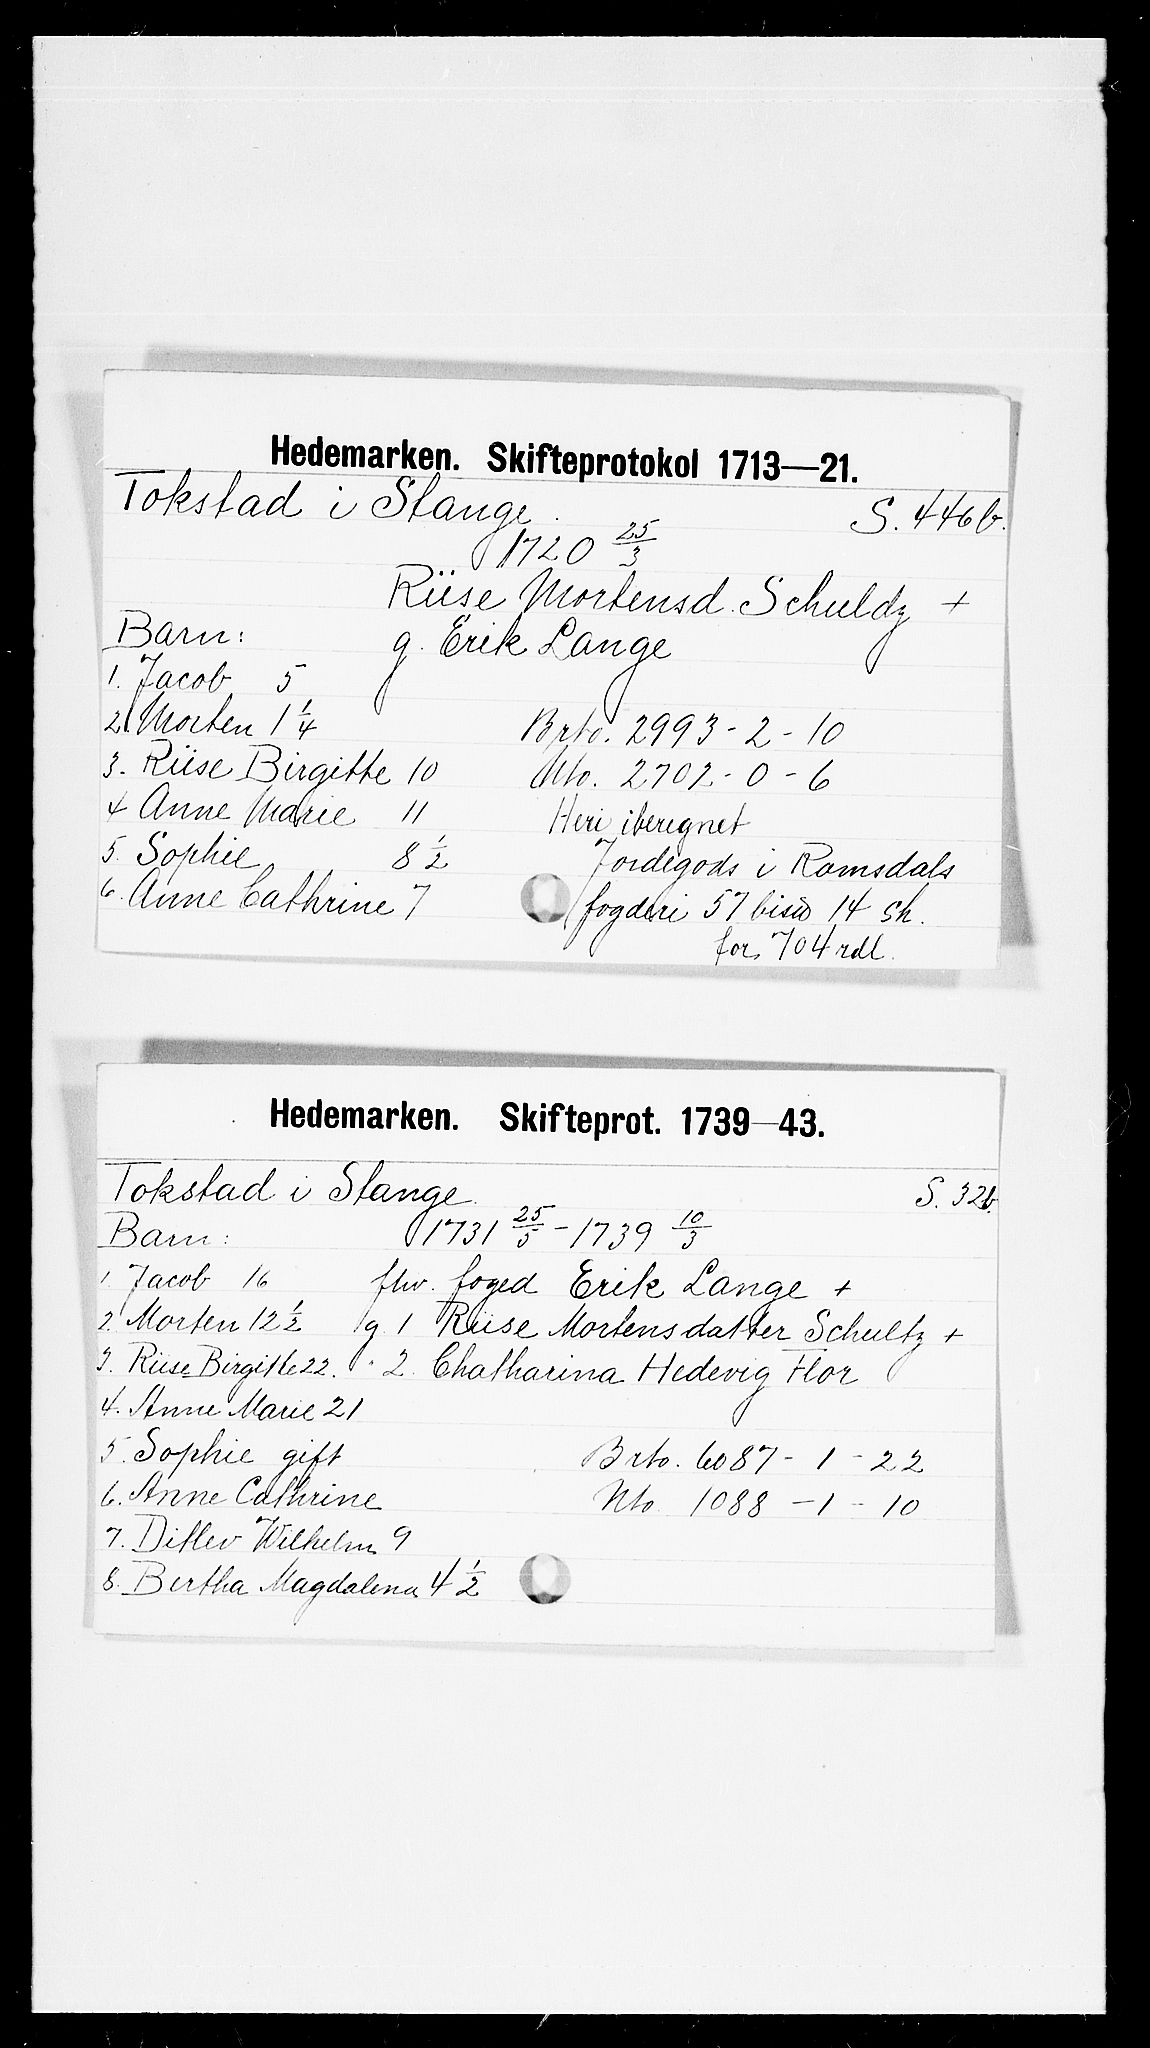 Hedemarken. Skifteprotokol 1713—21.
Tokstad i Stange. S. 446 b.
1720 25/3
Riise Mortensd. Schuldz +
Barn: g. Erik Lange
1. Jacob 5
2. Morten 1 1/4 Brto. 2993-2-10
3. Riise Birgitte 10 Nto. 2702-0-6
4 Anne Marie 11 Heri iberegnet
5. Sophie 8 1/2 Jordegods i Romsdals
6. Anne Cathrine 7 fogderi 57 14 sk.
for 704 rdl.
Hedemarken. Skifteprot. 1739—43.
Tokstad i Stange. S. 32b.
Barn: 1731 25/5 - 1739 10/3
1. Jacob 16 fhv. foged Erik Lange +
2. Morten 12 1/2 g. 1 Riise Mortensdatter Schultz +
3. Riise Birgitte 22. " 2. Chatharina Hedevig Flor
4. Anne Marie 21
5. Sophie gift Brto. 6087-1-22
6. Anne Cathrine Nto. 1088-1-10
7. Ditlev Wilhelm 9
8. Bertha Magdalena 4 1/2